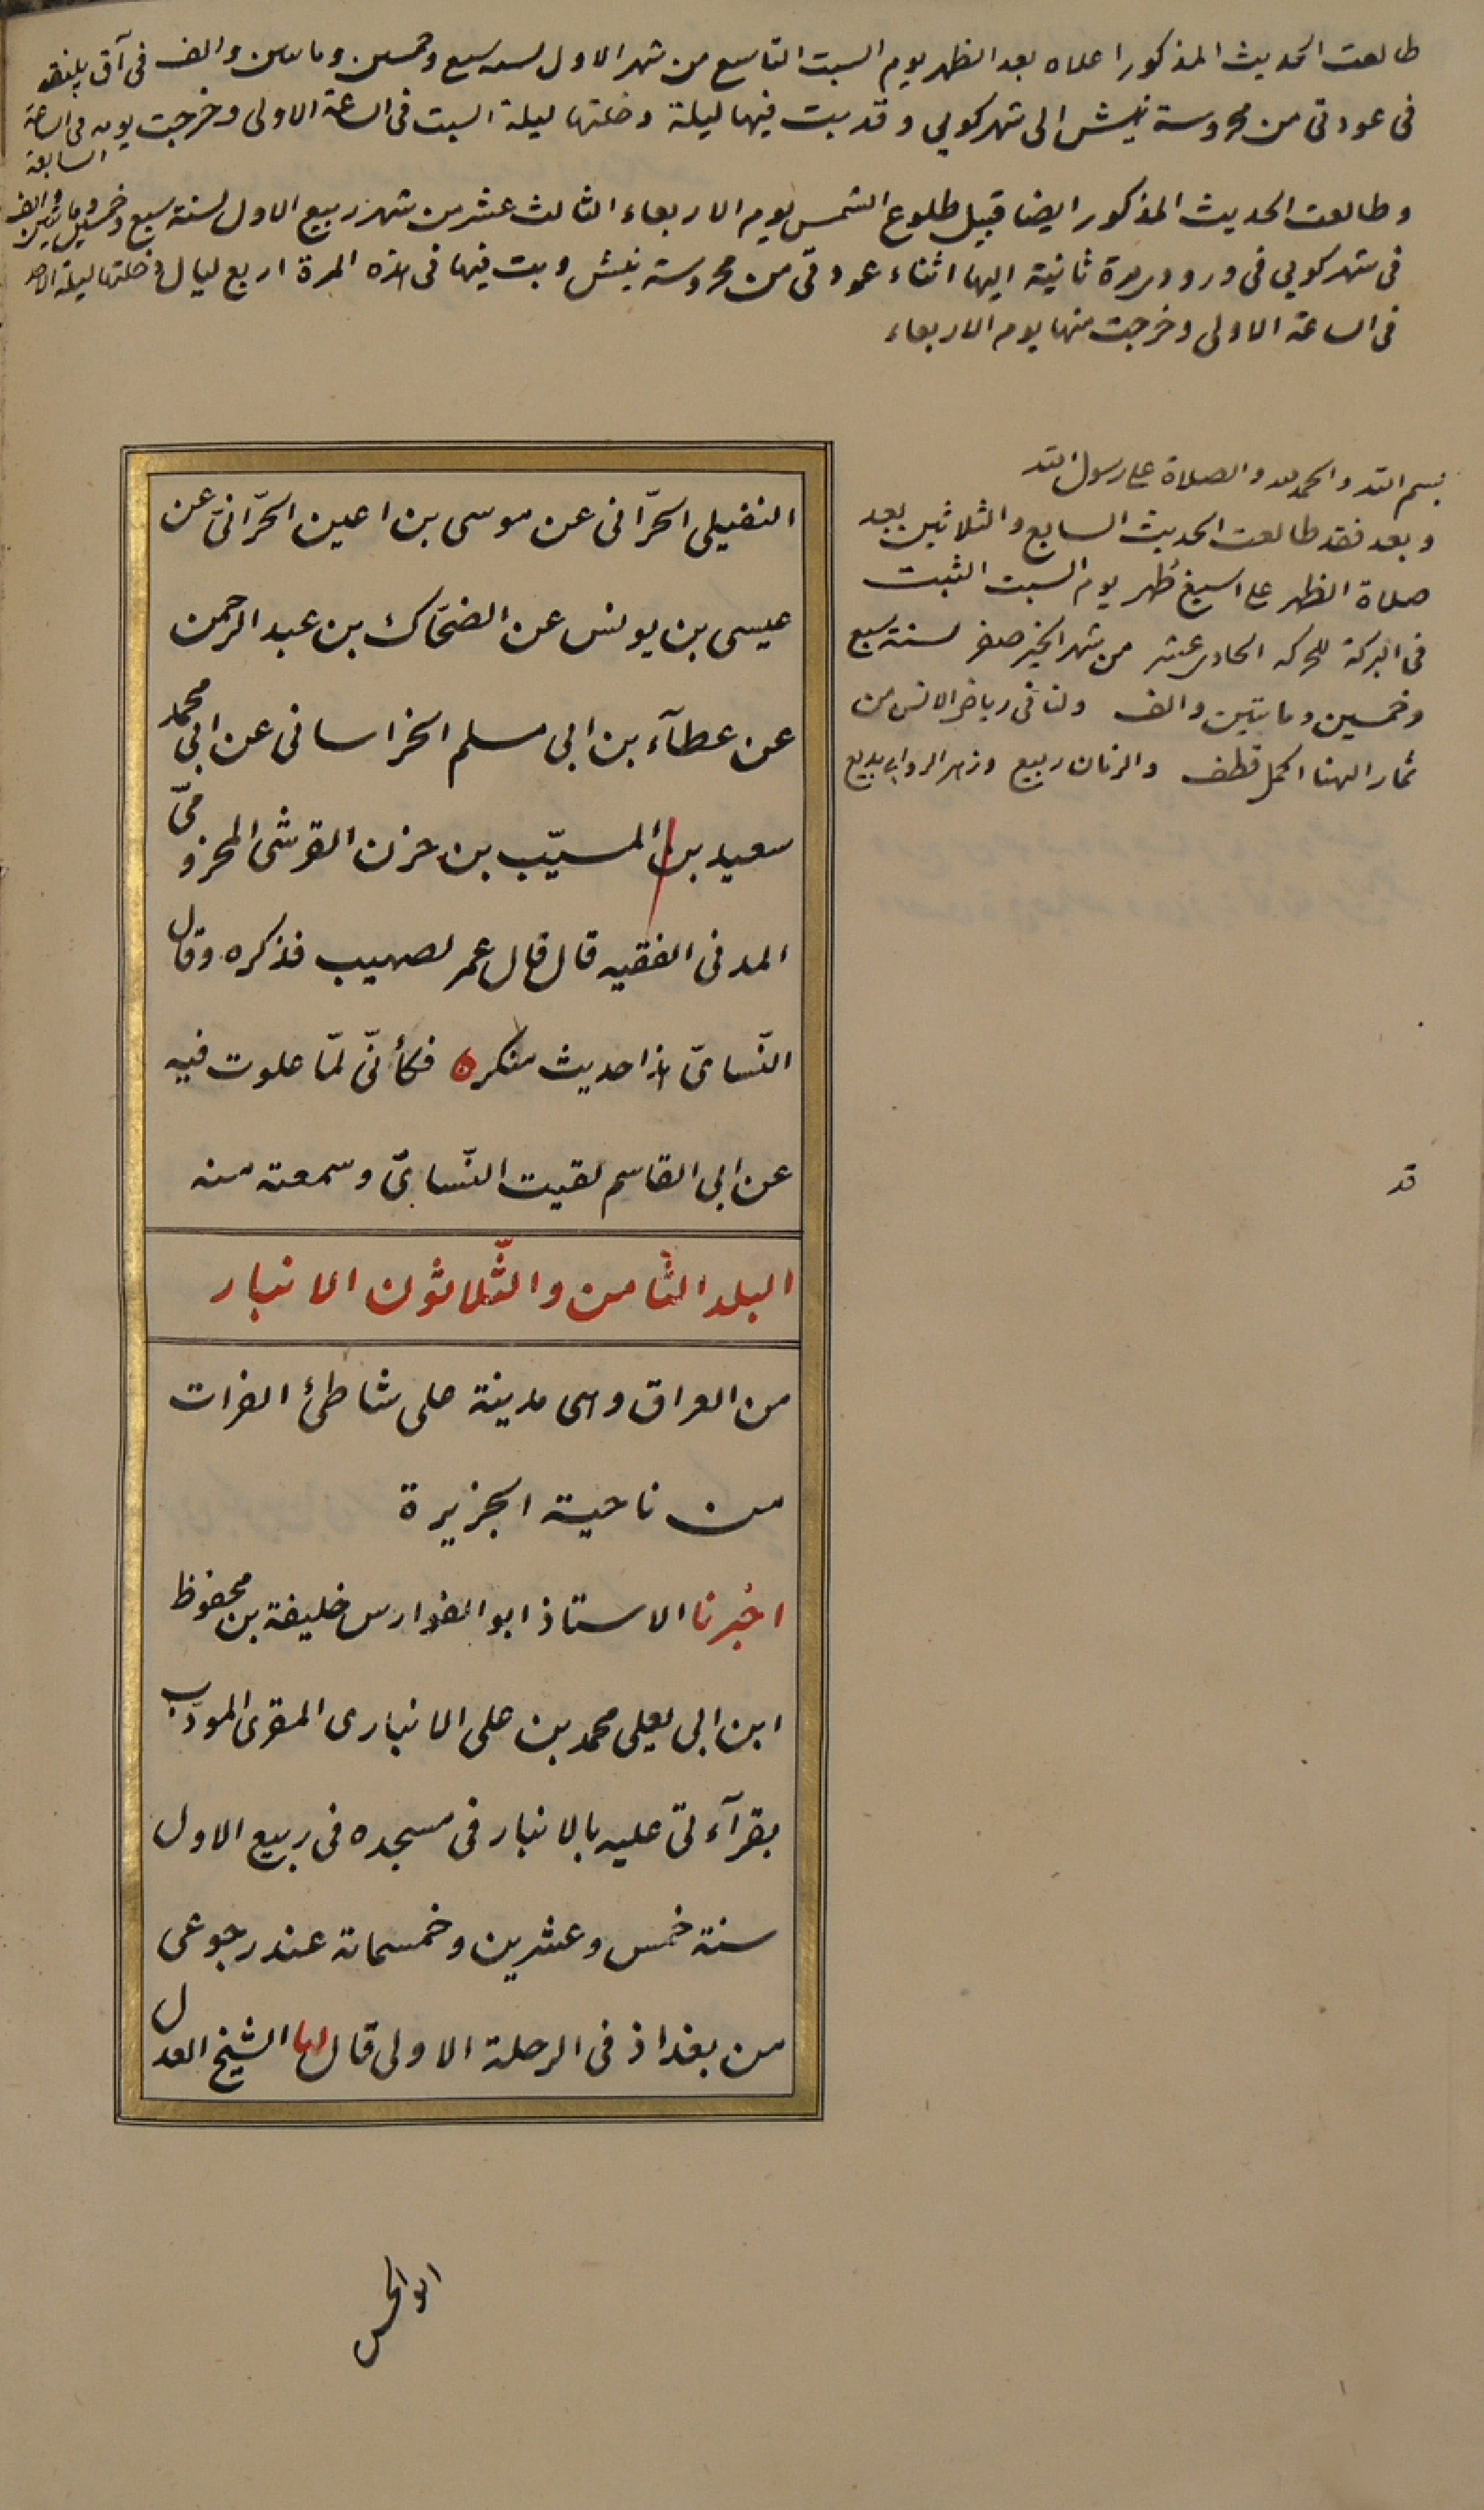 طالعت الحديث المذكور اعلاه بعد الظهر يوم السبت التاسع من شهر الاول لسنه سبع وخمسين ومايتين والف فى آق يلنقه
فى عودتى من محروسة نيش الى شهركويى وقد بت فيها ليلة دخلتها ليلة السبت فى الساعة الاولى وخرجت يومه فى الساعة
السابعة
وطالعت الحديث المذكور ايضا قبيل طلوع الشمس يوم الاربعاء الثالث عشر من شهر ربيع الاول لسنة سبع وخمسين ومايتين والف
فى شهركويى فى ورودى مرة ثانية اليها اثناء عودتى من محروسة نيش وبت فيها فى هذه المرة اربع ليال دخلتها ليلة الاحد
فى الساعة الاولى وخرجت منها يوم الاربعاء
بسم الله والحمد لله والصلاة على رسول الله
وبعد فقد طالعت الحديث السابع والثلاثين بعد
صلاة الظهر على اسبغ طهر يوم السبت الثبت
فى البركة للحركه الحادى عشر من شهر الخير صفر لسنة سبع
وخمسين ومايتين والف ولنا فى رياض الانس من
ثمار الهنا اكمل قطف والزمان ربيع وزهر الروابى بديع
النفيلى الحرّانى عن موسى بن اعين الحرّانىّ عن
عيسى بن يونس عن الضحّاك بن عبد الرحمن
عن عطآء بن ابى مسلم الخراسانى عن ابى محمد
سعيد بن المسيّب بن حزن القرشى المخزومىّ
المدنى الفقيه قال قال عمر لصهيب فذكره وقال
النّساىّ هذا حديث منكر ه فكأنّى لمّا علوت فيه
عن ابى القاسم لقيت النّساىّ وسمعته منه
البلد الثامن والثّلاثون الانبار
من العراق وهى مدينة على شاطئ الفرات
من ناحية الجزيرة
اخبرنا الاستاذ ابو الفوارس خليفة بن محفوظ
ابن ابى يعلى محمد بن على الانبارى المقرى المؤدّب
بقرآءتى عليه بالانبار فى مسجده فى ربيع الاول
سنة خمس وعشرين وخمسمائة عند رجوعى
من بغداذ فى الرحلة الاولى قال انا الشيخ العدل
قد
ابو الحسن